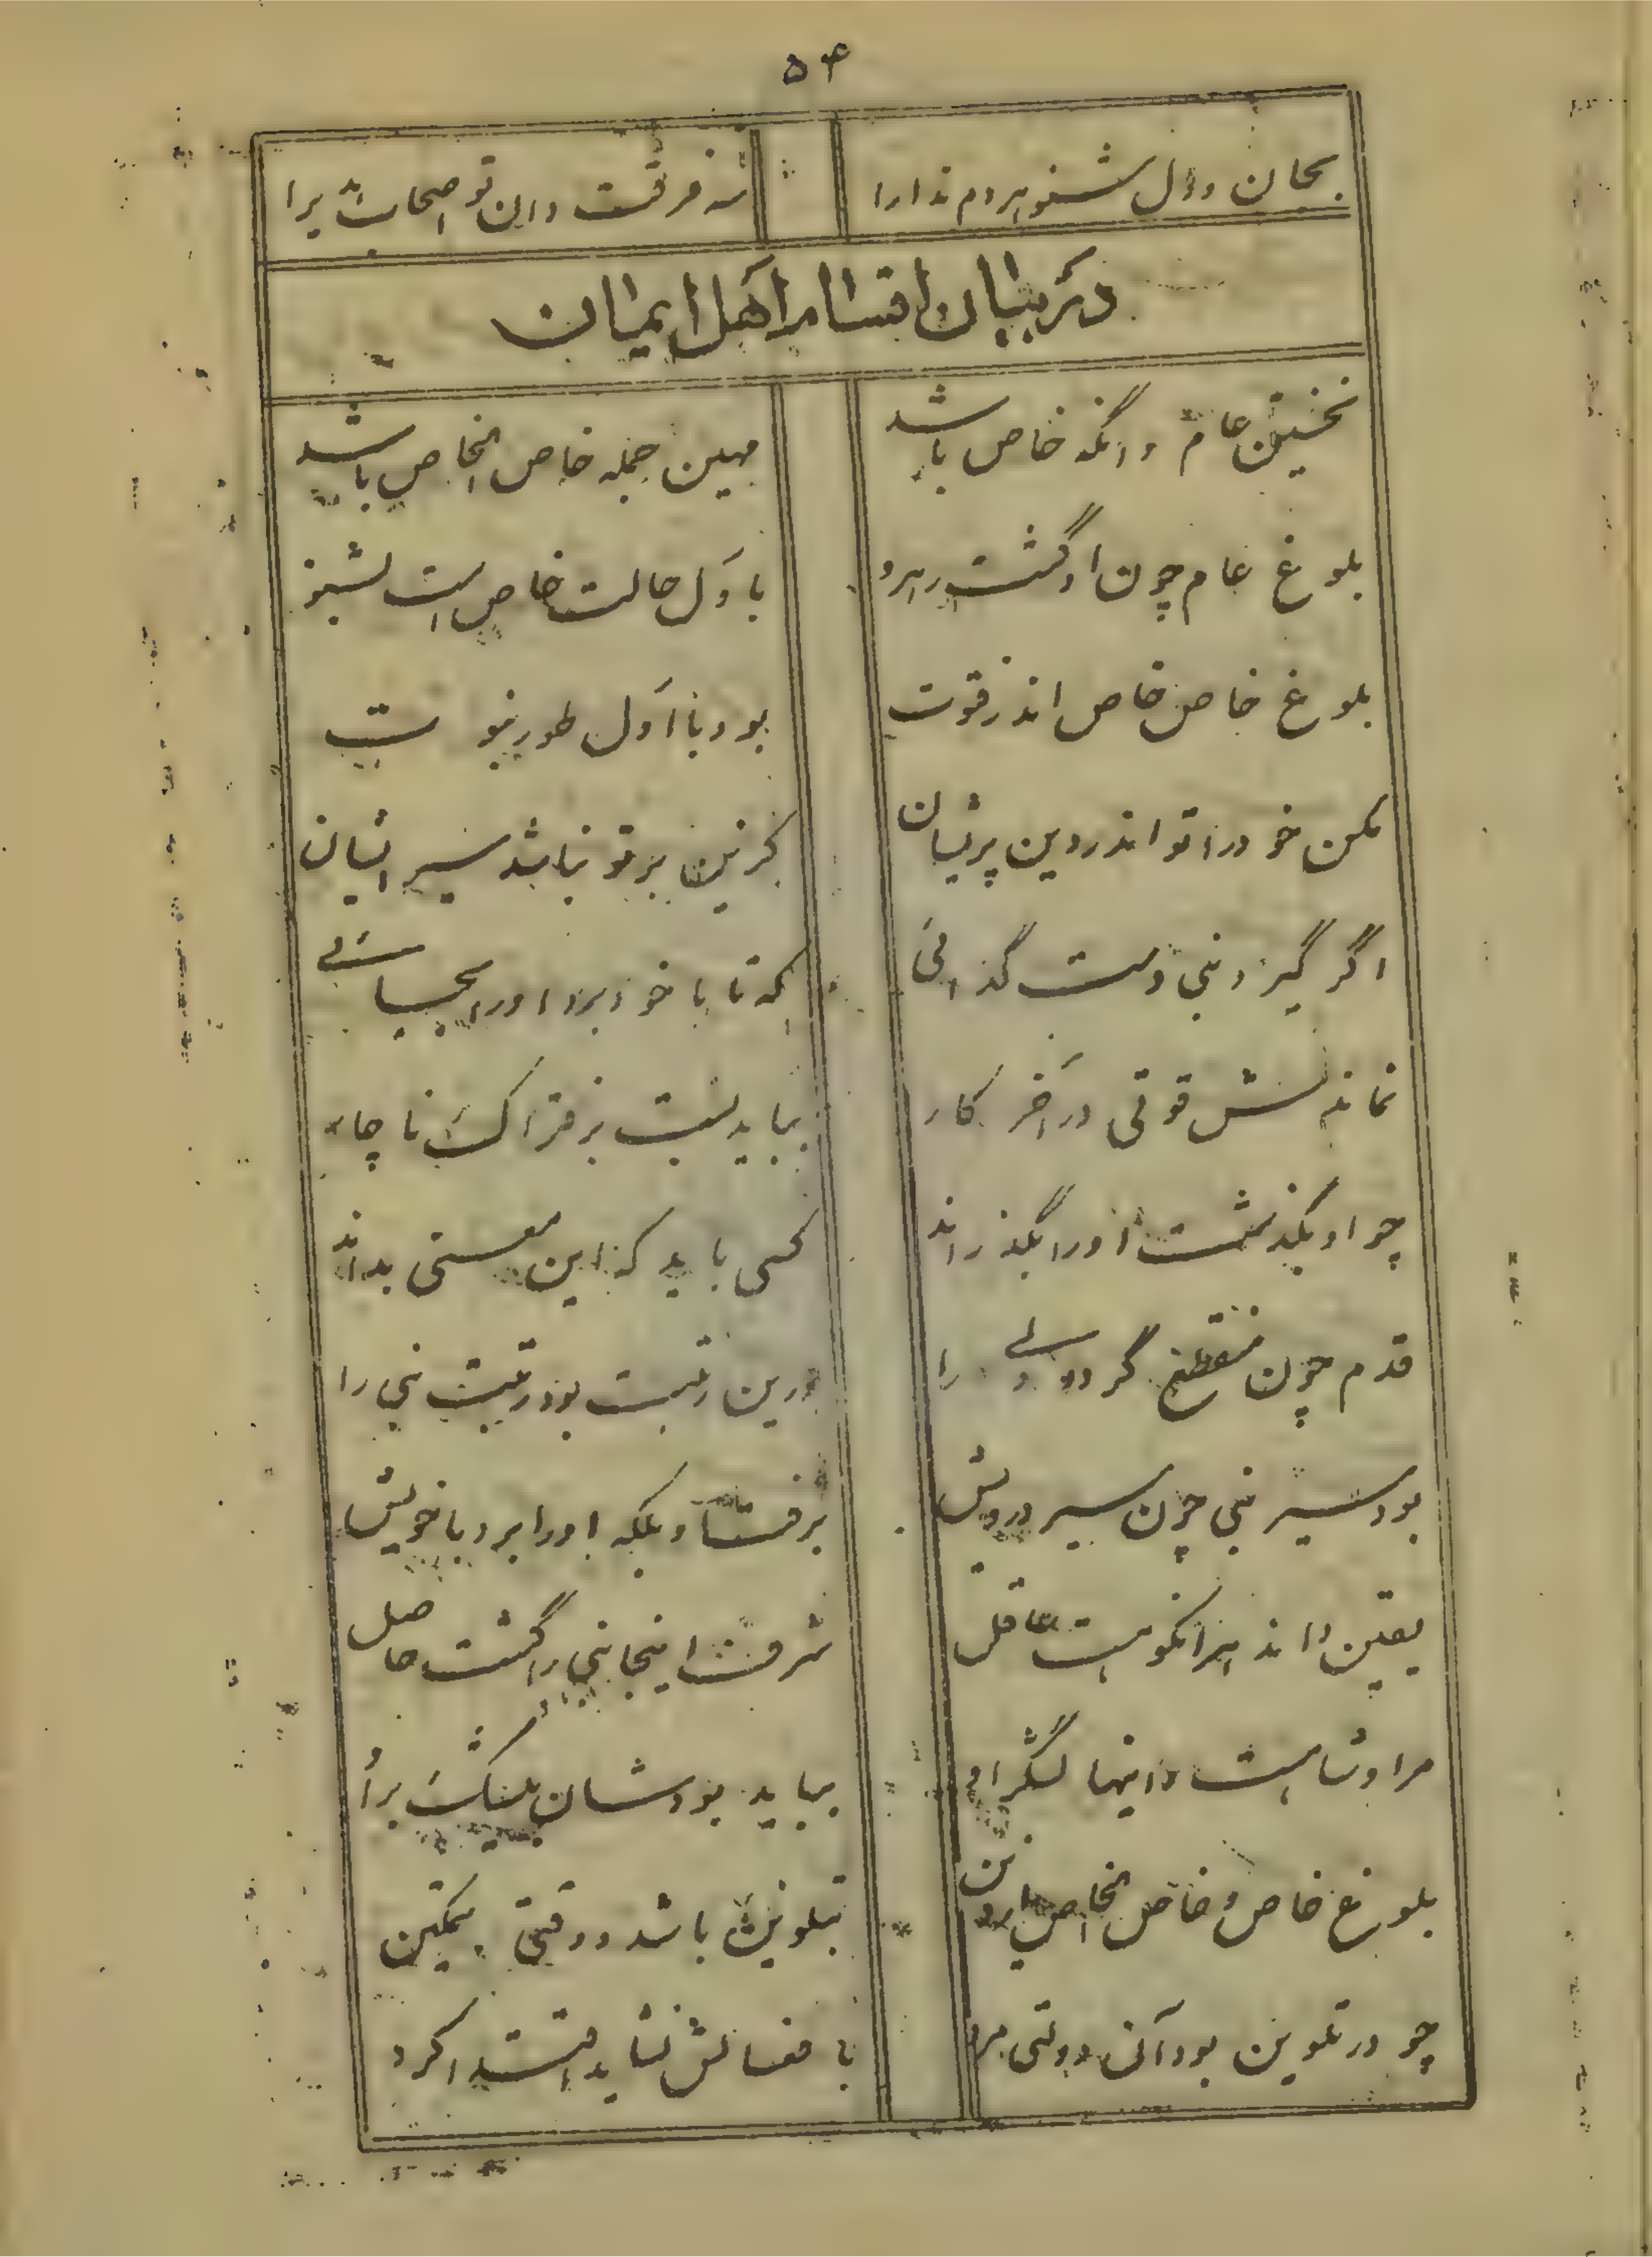 ۵۴
بجان ودل شنو هردم ندا را
سه فرقت دان تو اصحاب را
در بیان اقسام اهل ایمان
نخستین عام وانگه خاص باشد
مهین جمله خاص الخاص باشد
بلوغ عام چون او گشت رهرو
باول حالت خاص است بشنو
بلوغ خاص خاص اندر قوت
بود با اول طور نبوت
مکن خود را تو اندر دین پریشان
کزین برتو نباشد سیر ایشان
اگر گیرد نبی دست گدائی
که تا با خود برد او را بجائی
نماندش قوتی در آخر کار
بباید بست بر فتراک ناچار
چو او بگذشت او را بگذراند
کسی باید که این معنی بداند
قدم چون منقطع گردد ولی را
درین رتبت بود رتبت نبی را
بود سیر نبی چون سیر درویش
برفتا وبلکه او را برد با خویش
یقین داند هرانکو هست عاقل
شرف اینجا نبی را گشت حاصل
مرا وتا هست وانیها
بباید بودشان
بلوغ خاص و خاص الخاص
بتلوینش باشد ووقتی بتمکین
چو در تلوین بود آن دولتی مرد
با فعالش نشاید اقتدا کرد